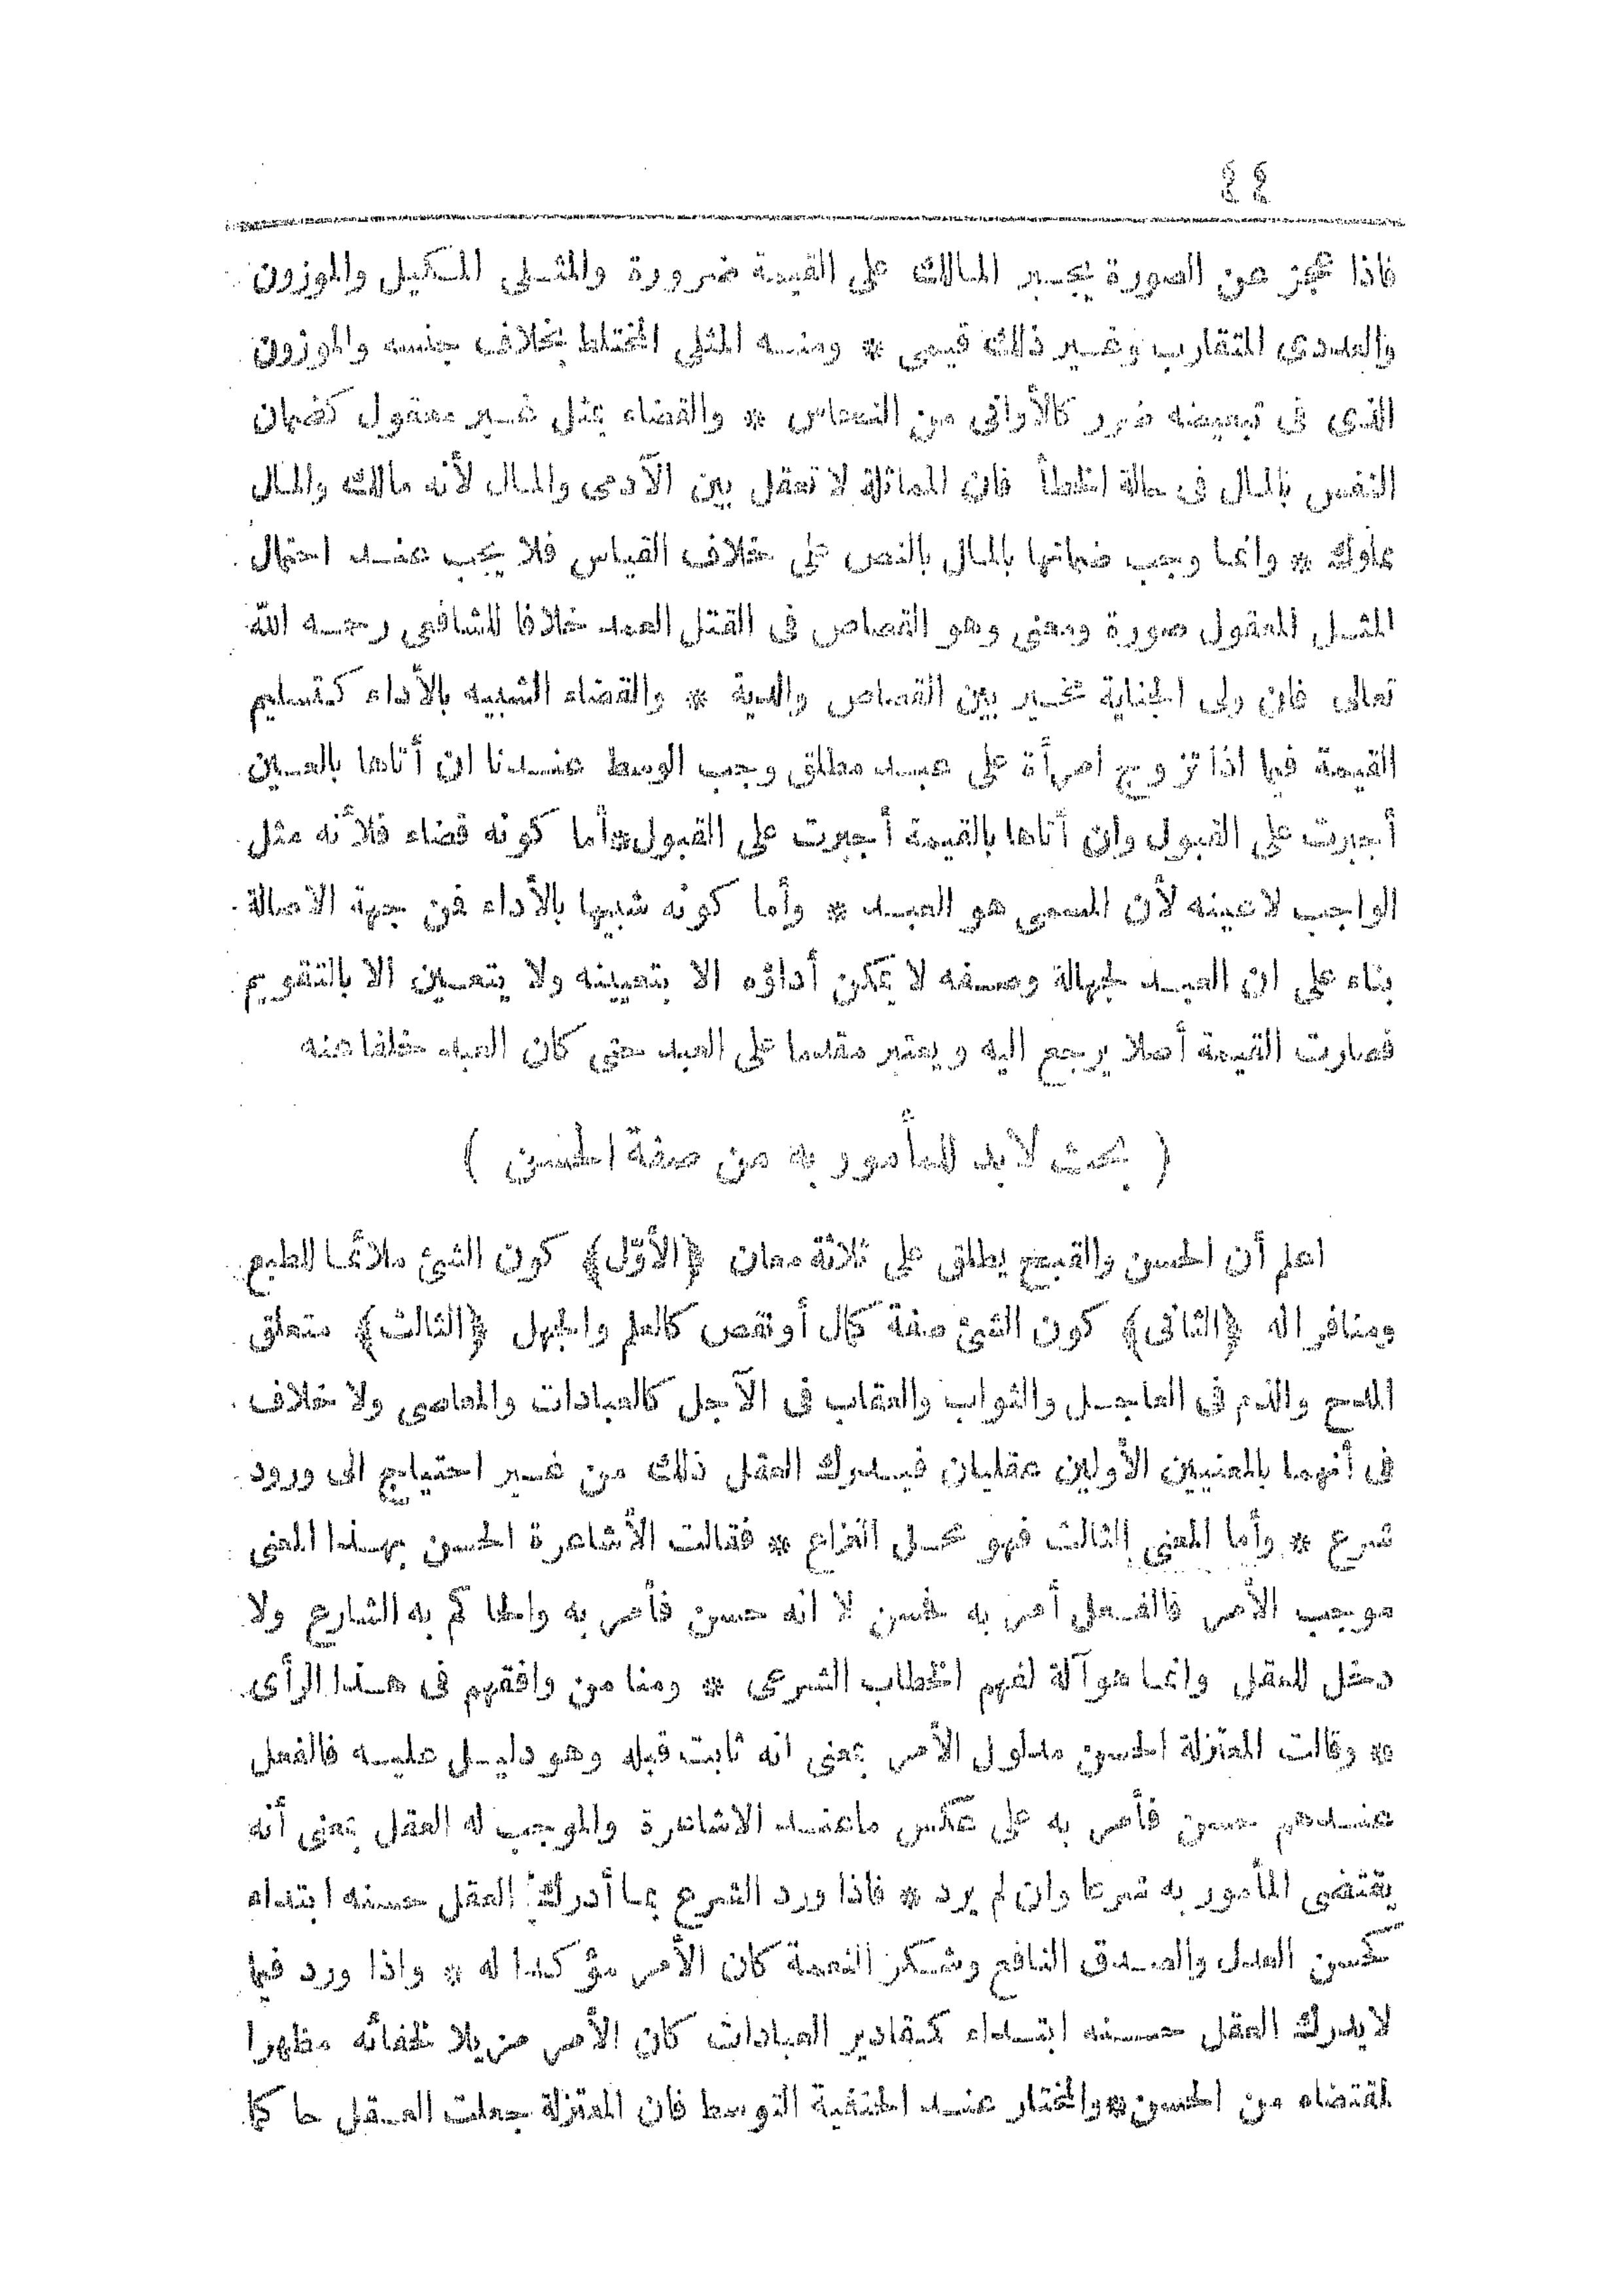 ٤٤
فاذا عجز عن الصورة يجبر المالك على القيمة ضرورة والمثلى المكيل والموزون
والعددى المتقارب وغير ذلك قيمى * ومنه المثلى المختلط بخلاف جنسه والموزون
الذى فى تبعيضه ضرر كالأوانى من النحاس * والقضاء بمثل غير معقول كضمان
النفس بالمال فى حالة الخطأ فان المماثلة لا تعقل بين الآدمى والمال لأنه مالك والمال
مملوك * وانما وجب ضمانها بالمال بالنص على خلاف القياس فلا يجب عند احتمال
المثل المعقول صورة ومعنى وهو القصاص فى القتل العمد خلافا للشافعى رحمه الله
تعالى فان ولى الجناية مخير بين القصاص والدية * والقضاء الشبيه بالأداء كتسليم
القيمة فيما اذا تزوج امرأة على عبد مطلق وجب الوسط عندنا ان أتاها بالعين
أجبرت على القبول وان أتاها بالقيمة أجبرت على القبول*أما كونه قضاء فلأنه مثل
الواجب لاعينه لأن المسمى هو العبد * وأما كونه شبيها بالأداء فمن جهة الاصالة
بناء على ان العبد لجهالة وصفه لا يمكن أداؤه الا بتعيينه ولا يتعين الا بالتقويم
فصارت القيمة أصلا يرجع اليه ويعتبر مقدما على العبد حتى كان العبد خلفا عنه
( بحث لابد للمأمور به من صفة الحسن )
اعلم أن الحسن والقبح يطلق على ثلاثة معان ﴿الأوّل﴾ كون الشئ ملائما للطبع
ومنافرا له ﴿الثانى﴾ كون الشئ صفة كمال أو نقص كالعلم والجهل ﴿الثالث﴾ متعلق
المدح والذم فى العاجل والثواب والعقاب فى الآجل كالعبادات والمعاصى ولا خلاف
فى أنهما بالمعنيين الأولين عقليان فيدرك العقل ذلك من غير احتياج الى ورود
شرع * وأما المعنى الثالث فهو محل النزاع * فقالت الأشاعرة الحسن بهذا المعنى
موجب الأمر فالفعل أمر به فحسن لا انه حسن فأمر به والحاكم به الشارع ولا
دخل للعقل وانما هو آلة لفهم الخطاب الشرعى * ومنا من وافقهم فى هذا الرأى
* وقالت المعتزلة الحسن مدلول الأمر بمعنى انه ثابت قبله وهو دليل عليه فالفعل
عندهم حسن فأمر به على عكس ما عند الاشاعرة والموجب له العقل بمعنى أنه
يقتضى المأمور به شرعا وان لم يرد * فاذا ورد الشرع بما أدرك العقل حسنه ابتداء
كحسن العدل والصدق النافع وشكر النعمة كان الأمر مؤكدا له * واذا ورد فيما
لا يدرك العقل حسنه ابتداء كمقادير العبادات كان الأمر مزيلا لخفائه مظهرا
لمقتضاه من الحسن*والمختار عند الحنفية التوسط فان المعتزلة جعلت العقل حاكما